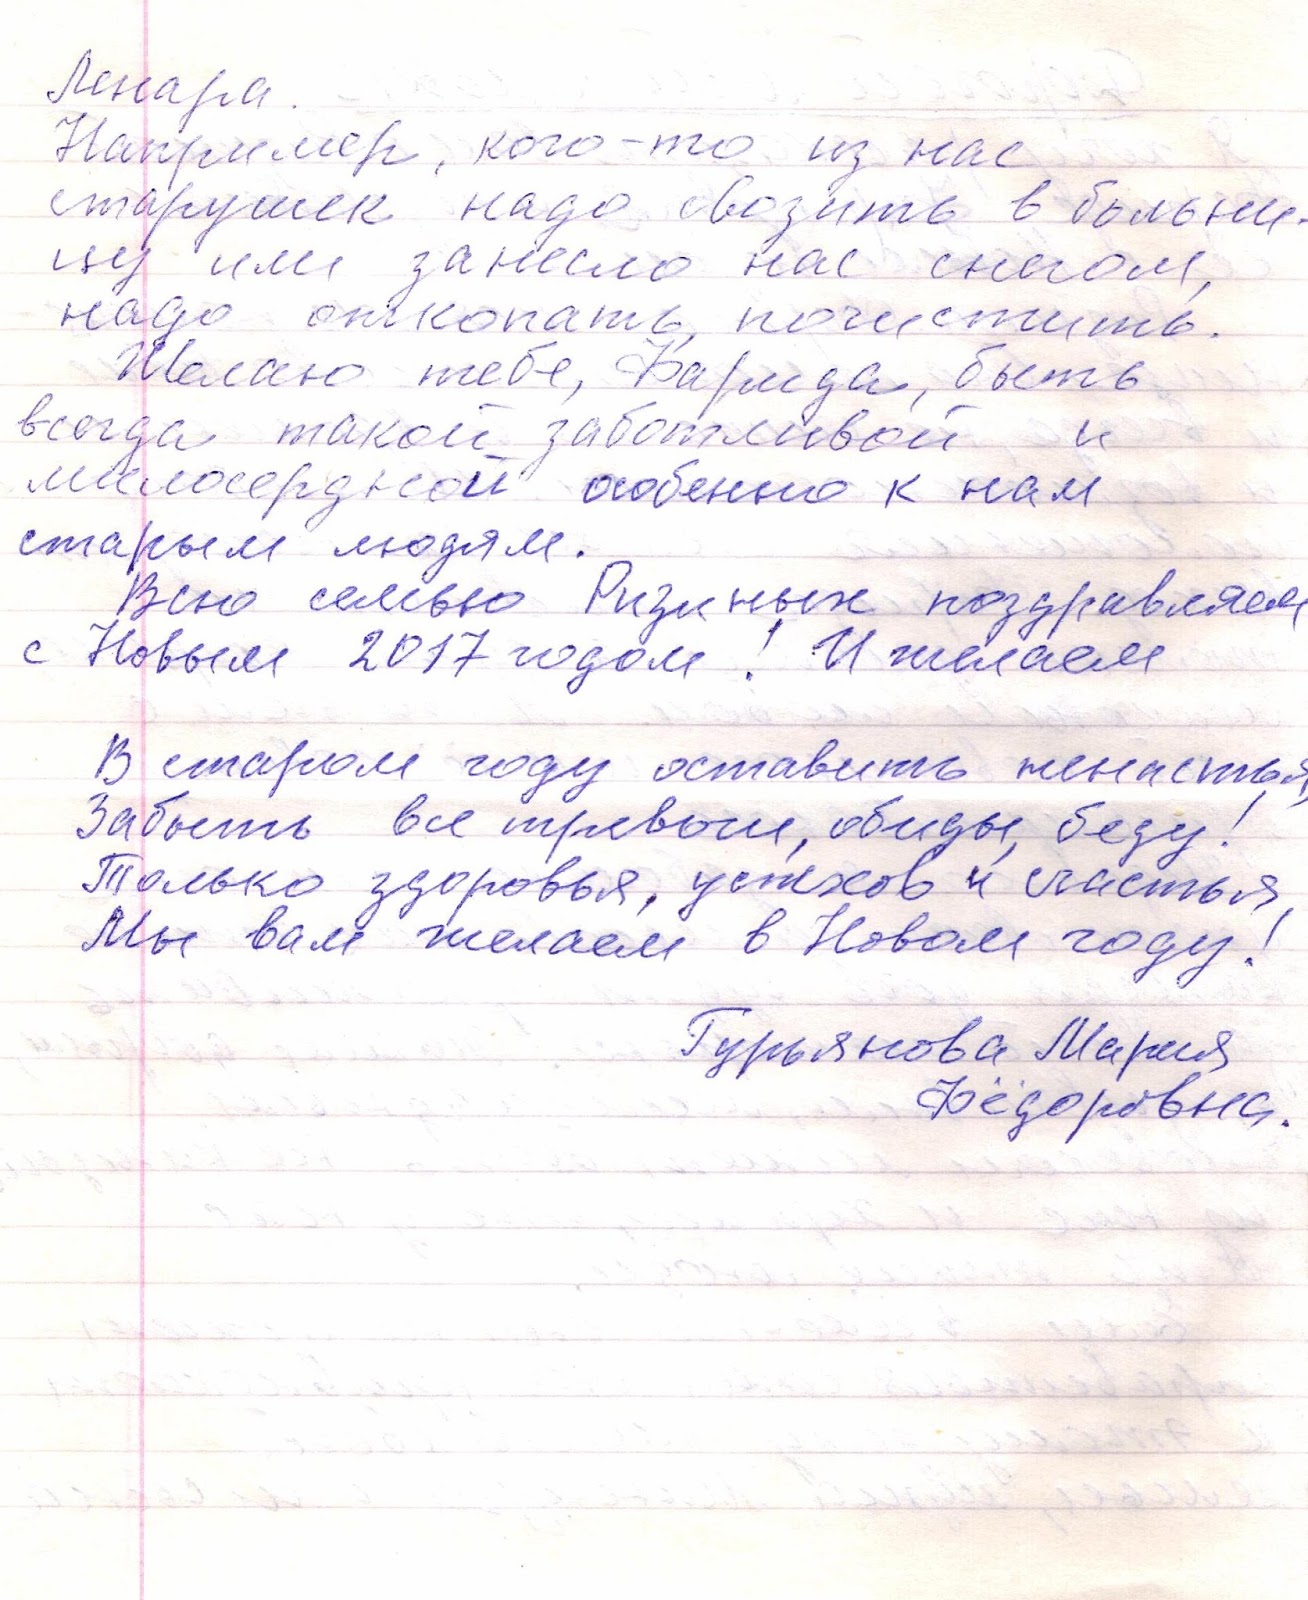 Ленара.
Например, кого-то из нас
старушек надо свозить в больни-
цу или занесло нас снегом,
надо откопать, почистить.
Желаю тебе, Фарида, быть
всегда такой заботливой и
милосердной особенно к нам
старым людям.
Всю семью Ризиных поздравляем
с Новым 2017 годом! И желаем
В старом году оставить ненастья,
Забыть все тревоги, обиды, беду!
Только здоровья, успехов и счастья,
Мы вам желаем в Новом году!
Гурьянова Мария
Фёдоровна.